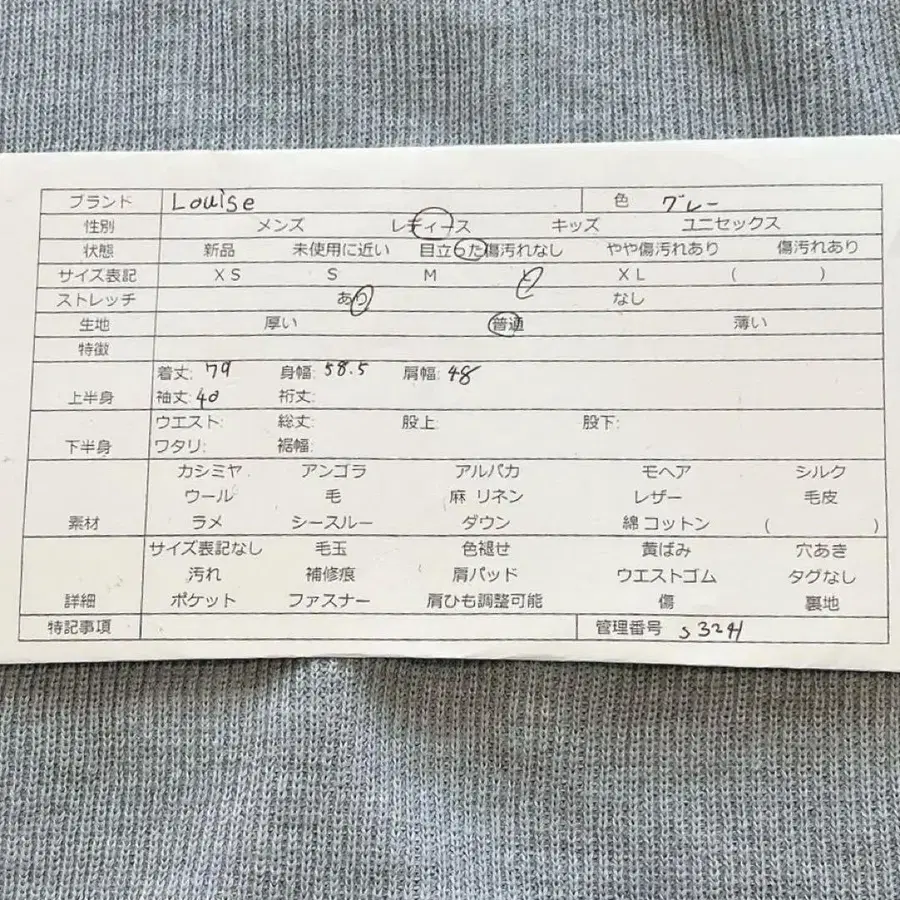 ブランド Louise 色 グレー
性別 メンズ レディース キッズ ユニセックス
状態 新品 未使用に近い 目立った傷汚れなし やや傷汚れあり 傷汚れあり
サイズ表記 XS S M L XL ( )
ストレッチ あり なし
生地 厚い 普通 薄い
特徴
上半身 着丈: 79 身幅: 58.5 肩幅: 48
袖丈: 40 裄丈:
下半身 ウエスト: 総丈: 股上: 股下:
ワタリ: 裾幅:
カシミヤ アンゴラ アルパカ モヘア シルク
ウール 毛 麻 リネン レザー 毛皮
素材 ラメ シースルー ダウン 綿 コットン ( )
サイズ表記なし 毛玉 色褪せ 黄ばみ 穴あき
汚れ 補修痕 肩パッド ウエストゴム タグなし
詳細 ポケット ファスナー 肩ひも調整可能 傷 裏地
特記事項 管理番号